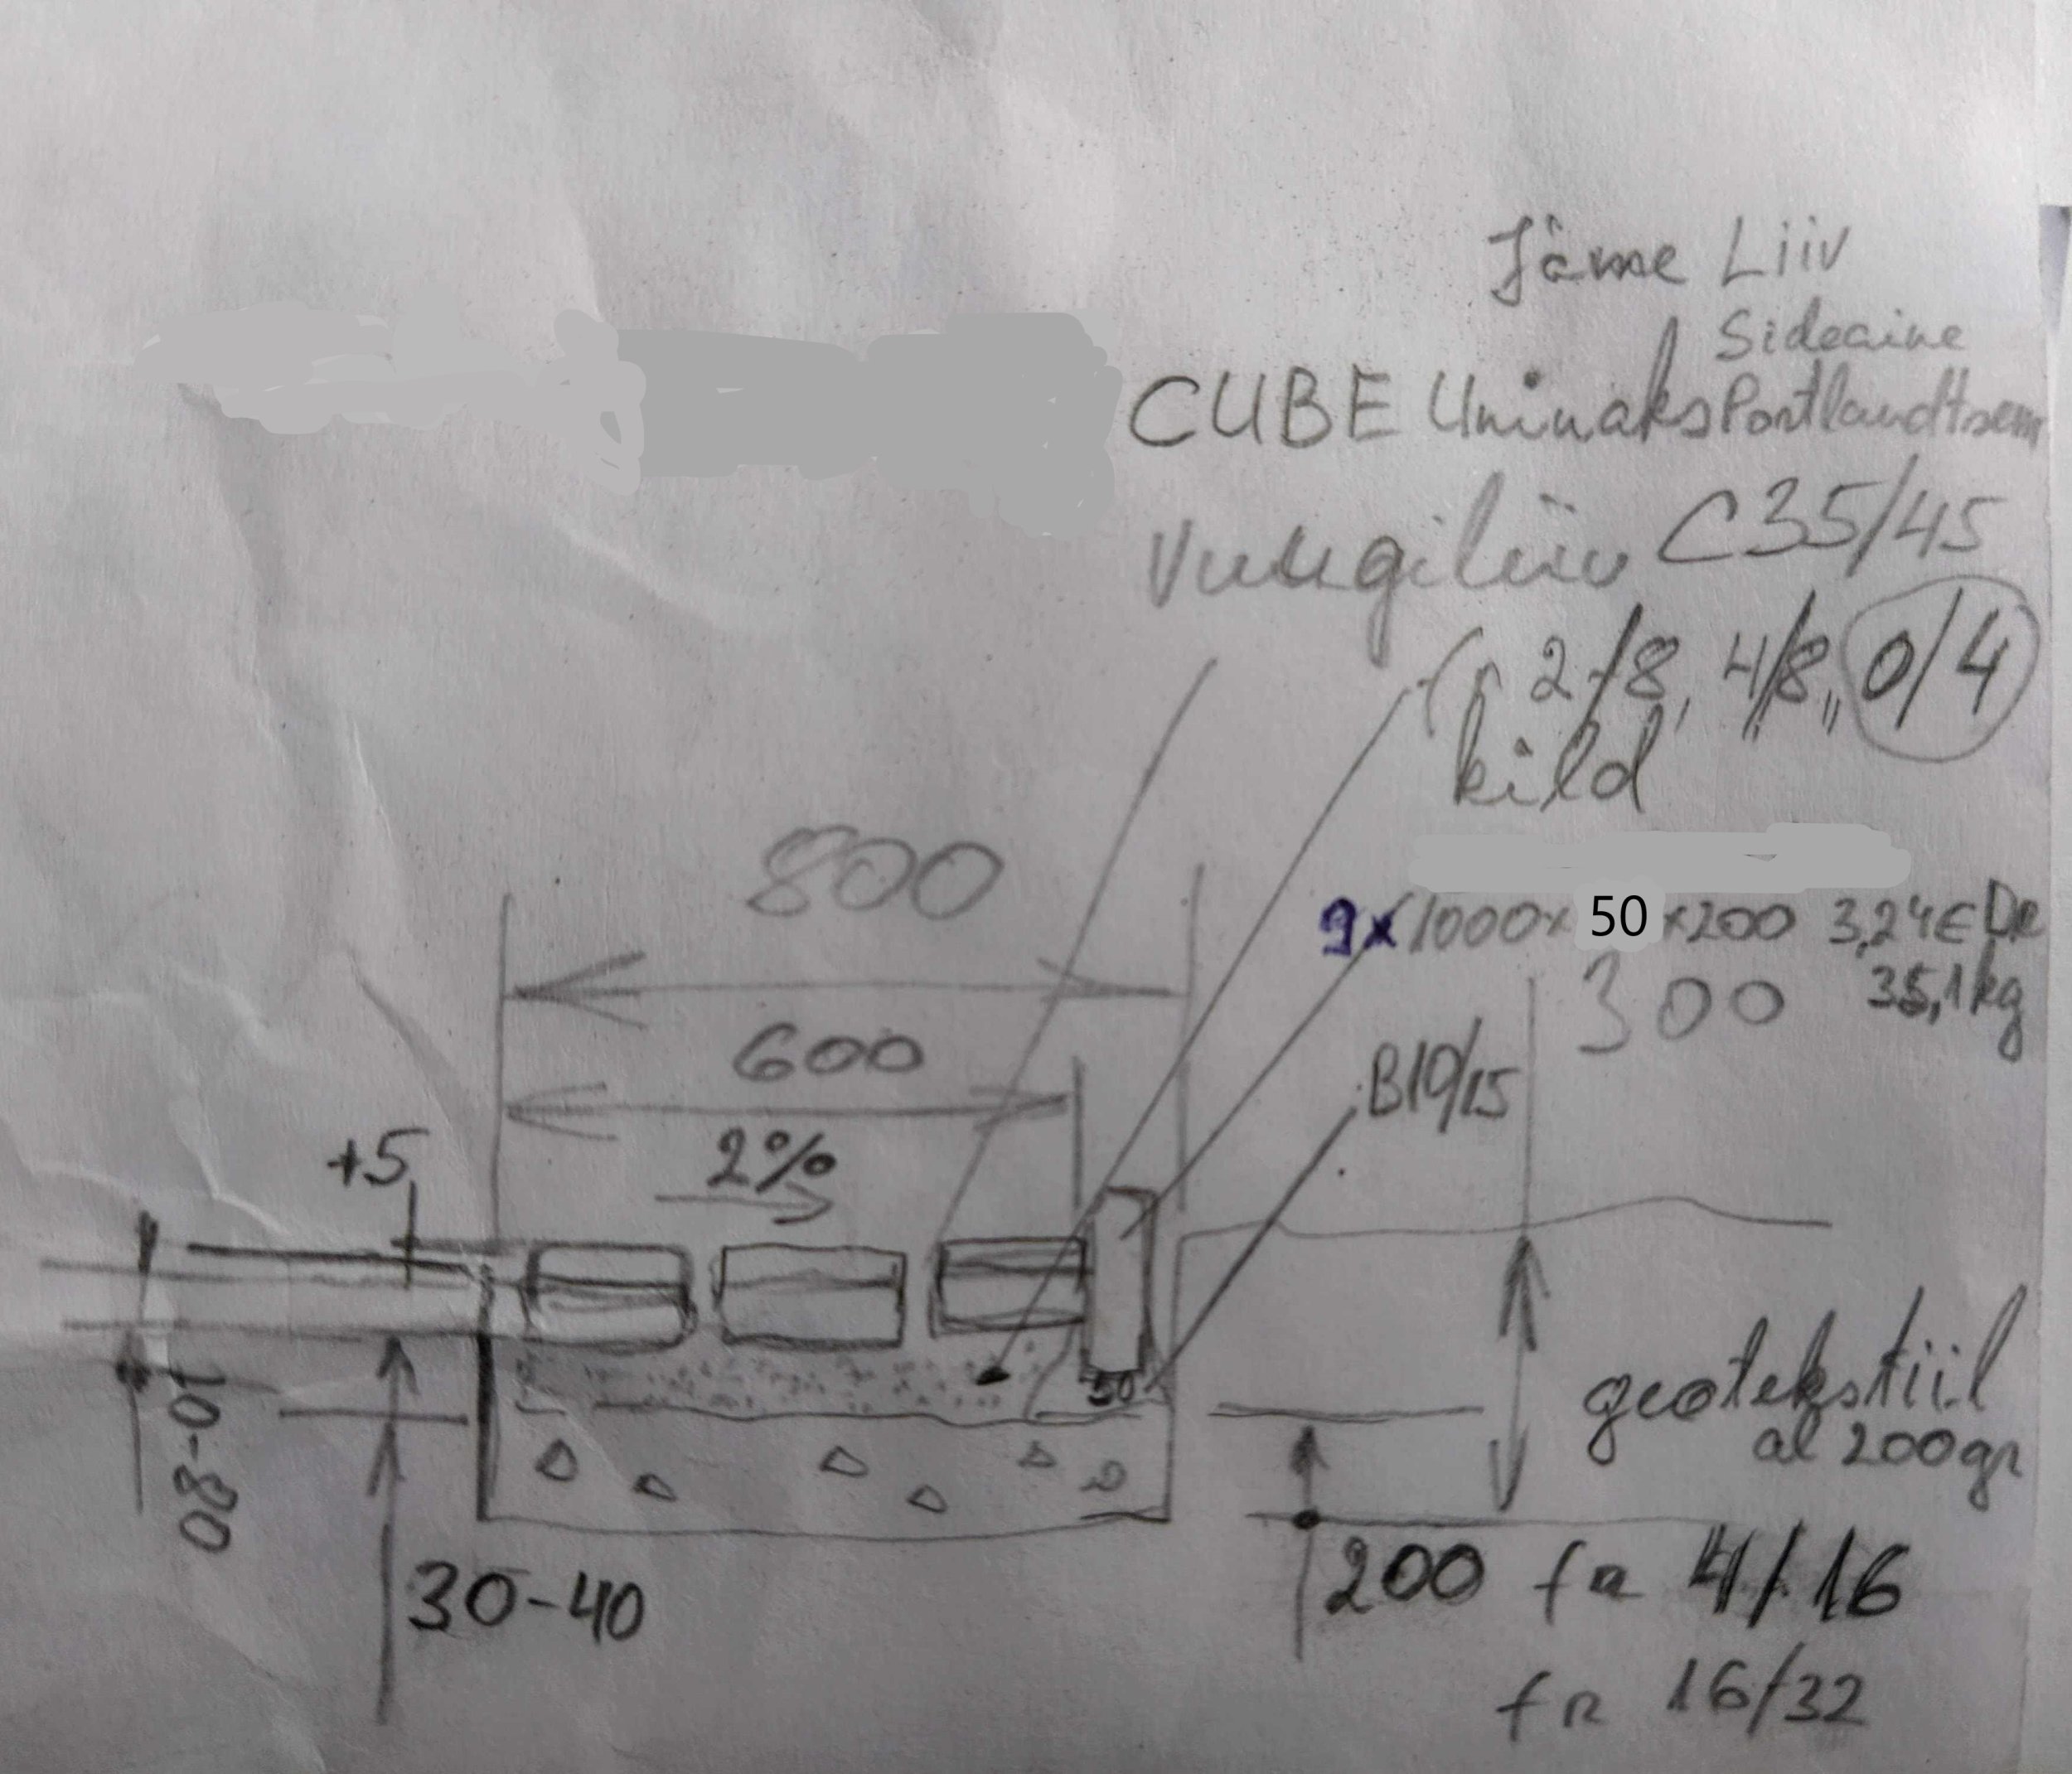 Jäme Liiv
Sideaine
CUBE Uninaks Portlandtsem
Vuugiliiv C35/45
fr 2/8, 4/8, 0/4
kild
800
9x(1000x50x200 3,24€
300 35,1kg
600
B10/15
2%
+5
50
geotekstiil
al 200gr
30-40
200 fr 4/16
fr 16/32